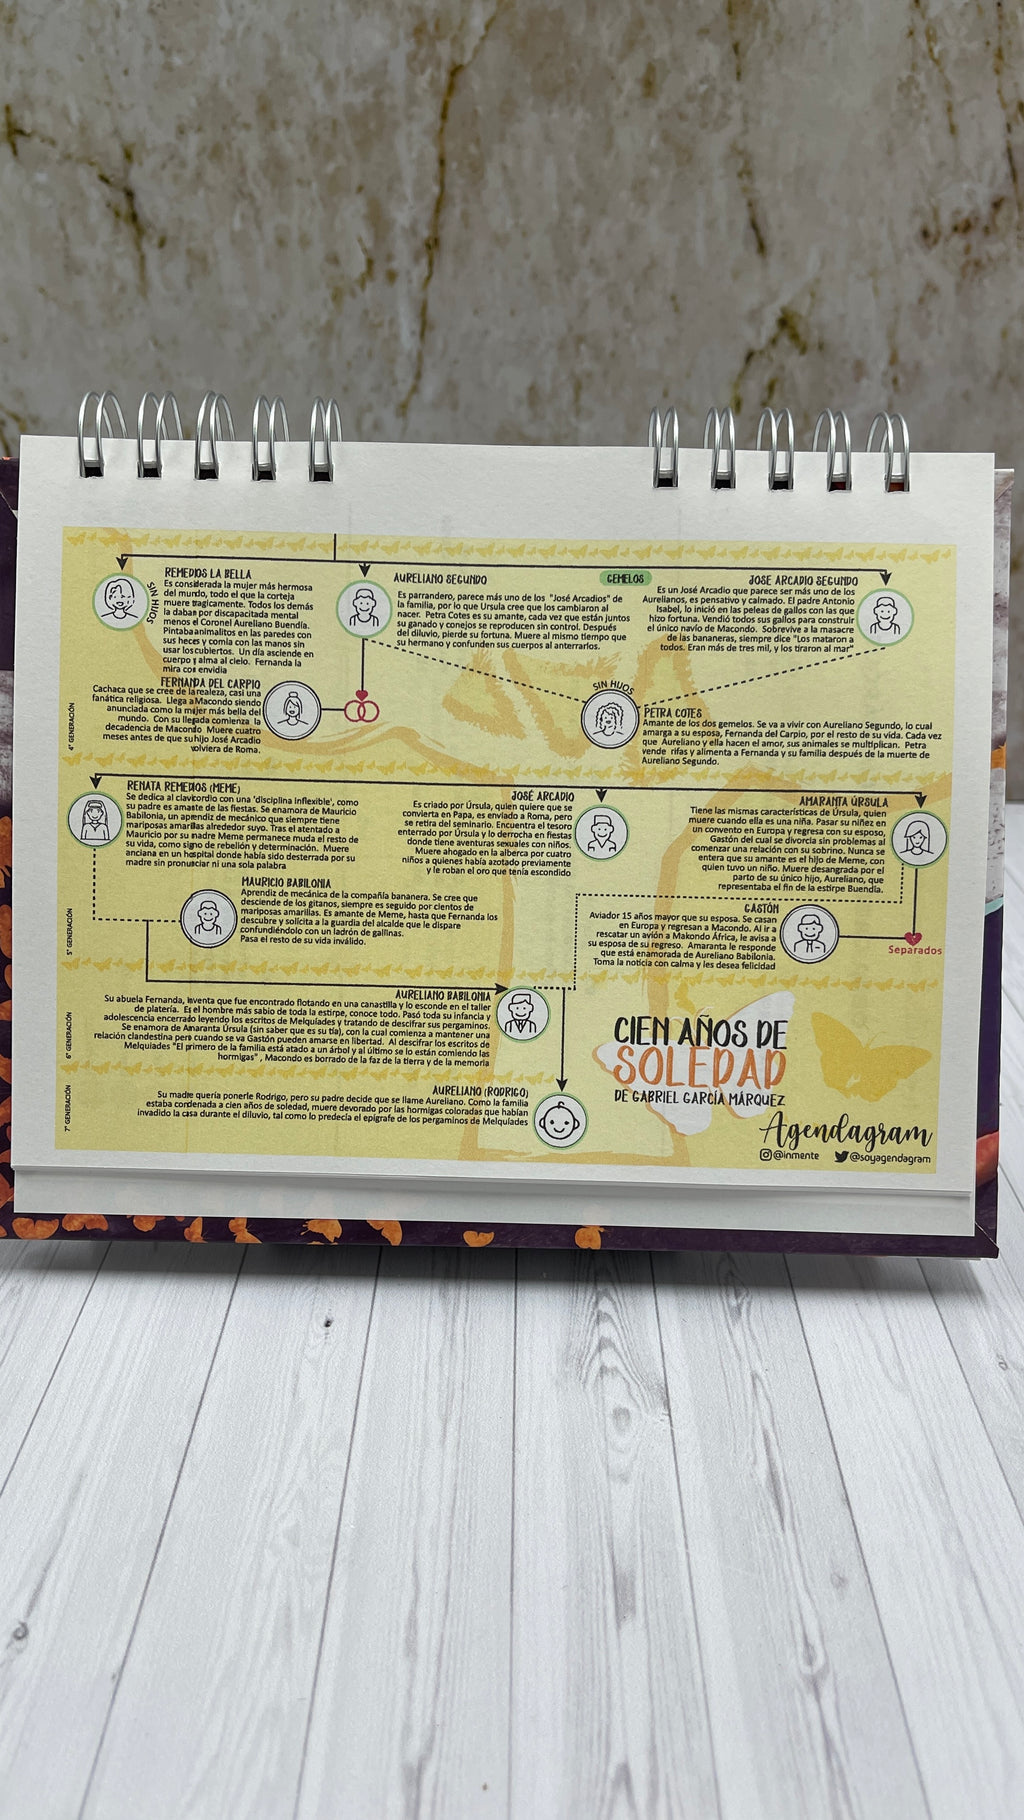 REMEDIOS LA BELLA
Es considerada la mujer más hermosa
del mundo, todo el que la corteja
muere tragicamente. Todos los demás
la daban por discapacitada mental
menos el Coronel Aureliano Buendía.
Pintaba animalitos en las paredes con
sus heces y comía con las manos sin
usar los cubiertos. Un día asciende en
cuerpo y alma al cielo. Fernanda la
mira con envidia
SIN HIJOS
AURELIANO SEGUNDO
Es parrandero, parece más uno de los "José Arcadios" de
la familia, por lo que Úrsula cree que los cambiaron al
nacer. Petra Cotes es su amante, cada vez que están juntos
su ganado y conejos se reproducen sin control. Después
del diluvio, pierde su fortuna. Muere al mismo tiempo que
su hermano y confunden sus cuerpos al enterrarlos.
GEMELOS
JOSE ARCADIO SEGUNDO
Es un José Arcadio que parece ser más uno de los
Aurelianos, es pensativo y calmado. El padre Antonio
Isabel, lo inició en las peleas de gallos con las que
hizo fortuna. Vendió todos sus gallos para construir
el único navío de Macondo. Sobrevive a la masacre
de las bananeras, siempre dice "Los mataron a
todos. Eran más de tres mil, y los tiraron al mar"
FERNANDA DEL CARPIO
Cachaca que se cree de la realeza, casi una
fanática religiosa. Llega a Macondo siendo
anunciada como la mujer más bella del
mundo. Con su llegada comienza la
decadencia de Macondo Muere cuatro
meses antes de que su hijo José Arcadio
volviera de Roma.
SIN HIJOS
PETRA COTES
Amante de los dos gemelos. Se va a vivir con Aureliano Segundo, lo cual
amarga a su esposa, Fernanda del Carpio, por el resto de su vida. Cada vez
que Aureliano y ella hacen el amor, sus animales se multiplican. Petra
vende rifas y alimenta a Fernanda y su familia después de la muerte de
Aureliano Segundo.
4° GENERACIÓN
RENATA REMEDIOS (MEME)
Se dedica al clavicordio con una 'disciplina inflexible', como
su padre es amante de las fiestas. Se enamora de Mauricio
Babilonia, un aprendiz de mecánico que siempre tiene
mariposas amarillas alrededor suyo. Tras el atentado a
Mauricio por su madre Meme permanece muda el resto de
su vida, como signo de rebelión y determinación. Muere
anciana en un hospital donde había sido desterrada por su
madre sin pronunciar ni una sola palabra
JOSÉ ARCADIO
Es criado por Úrsula, quien quiere que se
convierta en Papa, es enviado a Roma, pero
se retira del seminario. Encuentra el tesoro
enterrado por Úrsula y lo derrocha en fiestas
donde tiene aventuras sexuales con niños.
Muere ahogado en la alberca por cuatro
niños a quienes había azotado previamente
y le roban el oro que tenía escondido
AMARANTA ÚRSULA
Tiene las mismas características de Úrsula, quien
muere cuando ella es una niña. Pasar su niñez en
un convento en Europa y regresa con su esposo,
Gastón del cual se divorcia sin problemas al
comenzar una relación con su sobrino. Nunca se
entera que su amante es el hijo de Meme, con
quien tuvo un niño. Muere desangrada por el
parto de su único hijo, Aureliano, que
representaba el fin de la estirpe Buendía.
MAURICIO BABILONIA
Aprendiz de mecánica de la compañía bananera. Se cree que
desciende de los gitanos, siempre es seguido por cientos de
mariposas amarillas. Es amante de Meme, hasta que Fernanda los
descubre y solicita a la guardia del alcalde que le dispare
confundiéndolo con un ladrón de gallinas.
Pasa el resto de su vida inválido.
GASTÓN
Aviador 15 años mayor que su esposa. Se casan
en Europa y regresan a Macondo. Al ir a
rescatar un avión a Makondo África, le avisa a
su esposa de su regreso. Amaranta le responde
que está enamorada de Aureliano Babilonia.
Toma la noticia con calma y les desea felicidad
Separados
5° GENERACIÓN
AURELIANO BABILONIA
Su abuela Fernanda, inventa que fue encontrado flotando en una canastilla y lo esconde en el taller
de platería. Es el hombre más sabio de toda la estirpe, conoce todo. Pasó toda su infancia y
adolescencia encerrado leyendo los escritos de Melquíades y tratando de descifrar sus pergaminos.
Se enamora de Amaranta Úrsula (sin saber que es su tía), con la cual comienza a mantener una
relación clandestina pero cuando se va Gastón pueden amarse en libertad. Al descifrar los escritos de
Melquíades "El primero de la familia está atado a un árbol y al último se lo están comiendo las
hormigas" , Macondo es borrado de la faz de la tierra y de la memoria
6° GENERACIÓN
AURELIANO (RODRIGO)
Su madre quería ponerle Rodrigo, pero su padre decide que se llame Aureliano. Como la familia
estaba condenada a cien años de soledad, muere devorado por las hormigas coloradas que habían
invadido la casa durante el diluvio, tal como lo predecía el epígrafe de los pergaminos de Melquíades
7° GENERACIÓN
CIEN AÑOS DE
SOLEDAD
DE GABRIEL GARCÍA MÁRQUEZ
Agendagram
@inmente @soyagendagram